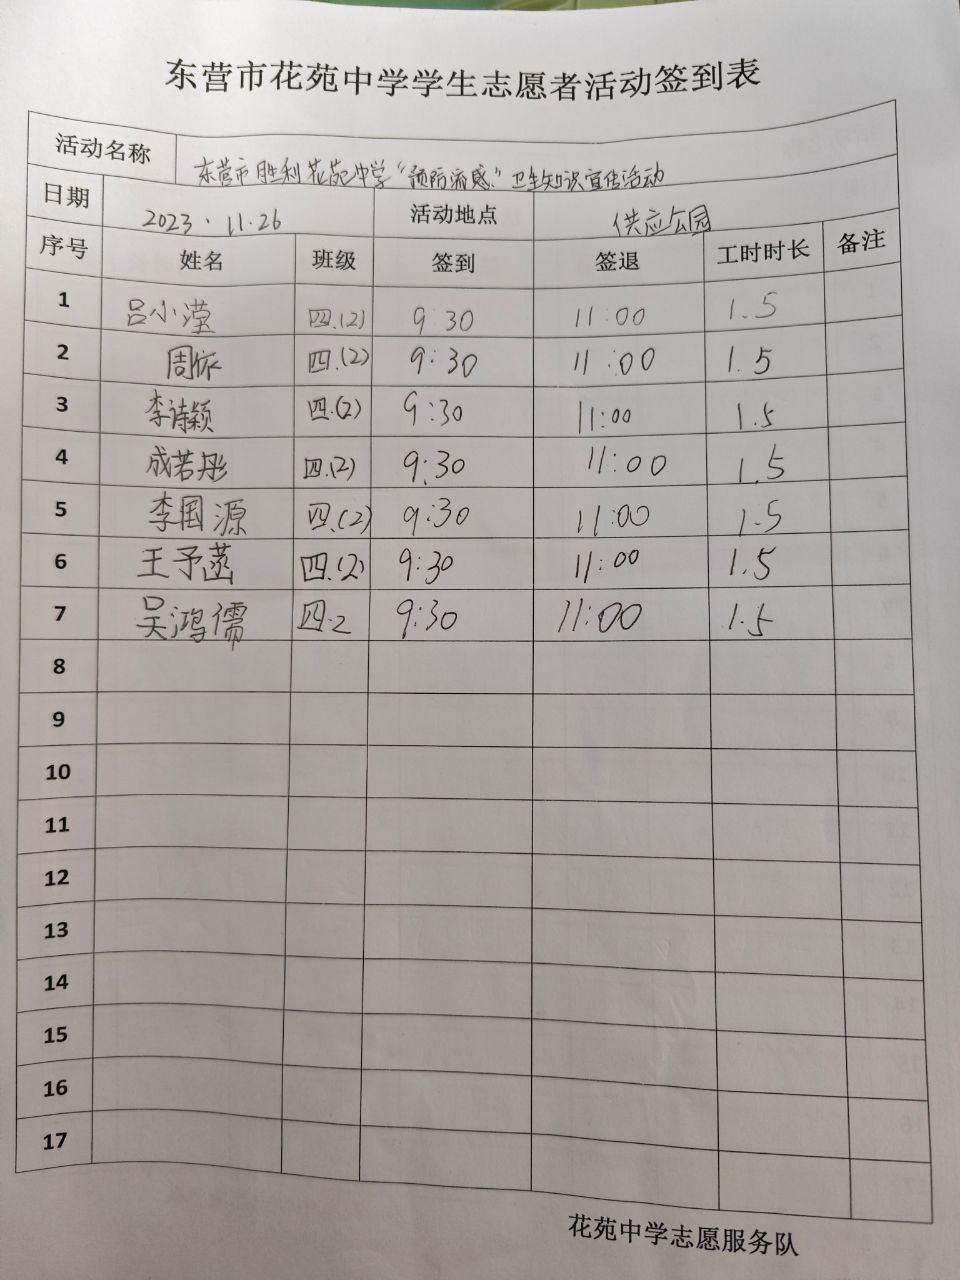 东营市花苑中学学生志愿者活动签到表
活动名称 东营市胜利花苑中学“预防流感”卫生知识宣传活动
日期 2023.11.26 活动地点 供应公园
序号 姓名 班级 签到 签退 工时时长 备注
1 吕小滢 四.(2) 9:30 11:00 1.5
2 周依 四.(2) 9:30 11:00 1.5
3 李诗颖 四.(2) 9:30 11:00 1.5
4 成若彤 四.(2) 9:30 11:00 1.5
5 李国源 四.(2) 9:30 11:00 1.5
6 王予菡 四.(2) 9:30 11:00 1.5
7 吴鸿儒 四.2 9:30 11:00 1.5
8
9
10
11
12
13
14
15
16
17
花苑中学志愿服务队